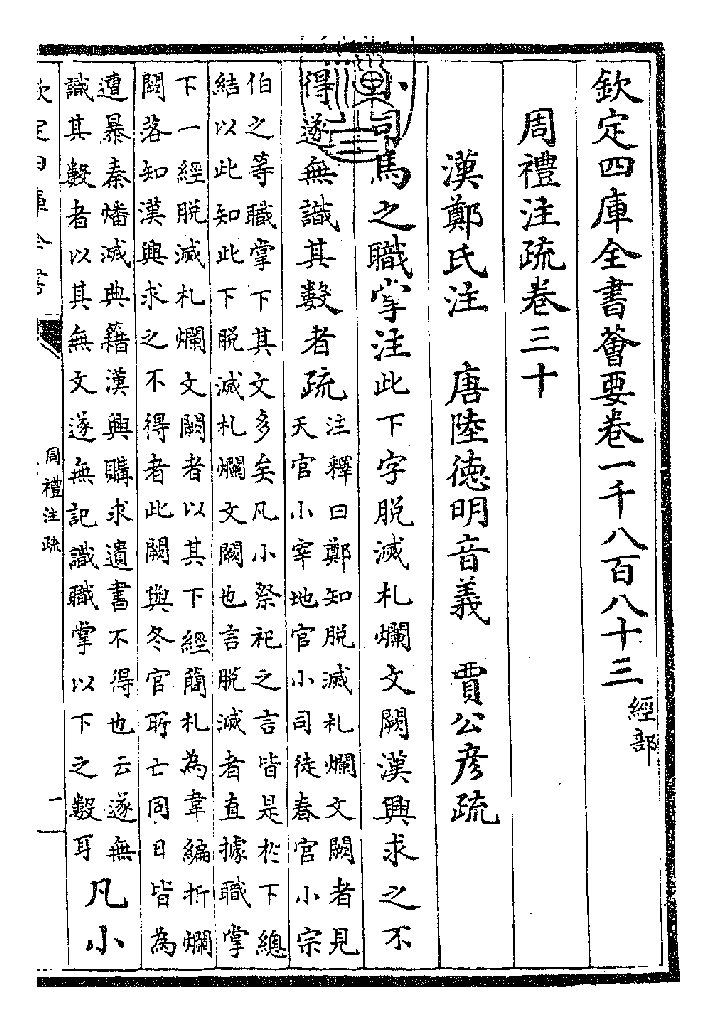 欽定四庫全書薈要卷一千八百八十三
經部
周禮注疏卷三十
漢鄭氏注　唐陸德明音義　賈公彦疏
小司馬之職掌注此下字脱滅札爛文闕漢興求之不
得遂無識其數者疏
注釋曰鄭知脱滅札爛文闕者見
天官小宰地官小司徒春官小宗
伯之等職掌下其文多矣凡小祭祀之言皆是於下總
結以此知此下脱滅札爛文闕也言脱滅者直據職掌
下一經脱滅札爛文闕者以其下經簡札為韋編折爛
闕落知漢興求之不得者此闕與冬官所亡同日皆為
遭暴秦燔滅典籍漢興購求遺書不得也云遂無
識其數者以其無文遂無記識職掌以下之數耳
凡小
欽定四庫全書
周禮注疏
一